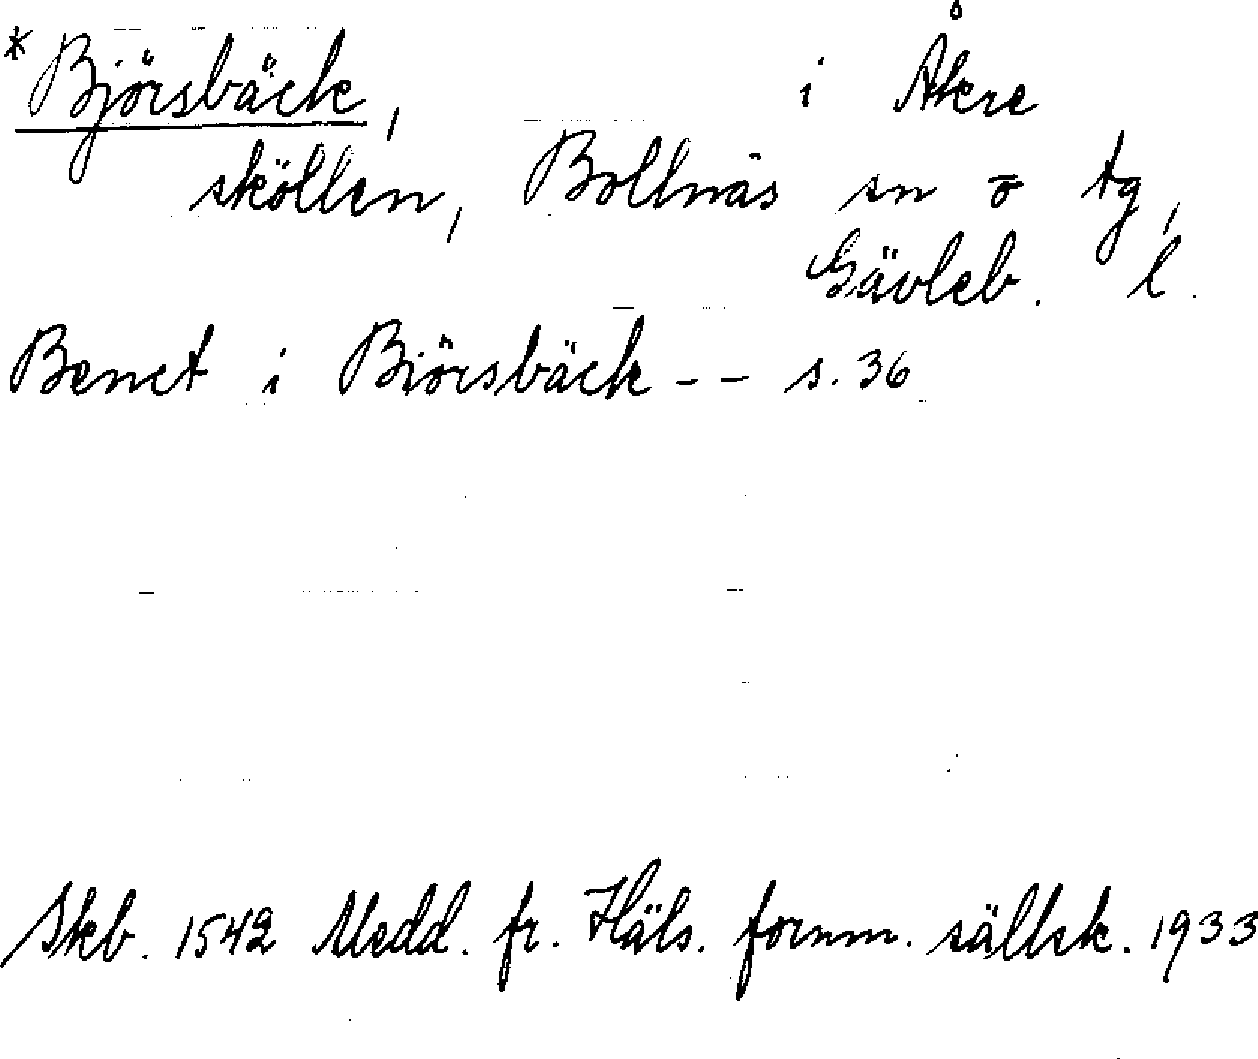 *Björsbäck, i Åkre
sköllen, Bollnäs sn o tg,
Gävleb. l.
Benct i Biörsbäck -- s. 36
Skb. 1542 Medd. fr. Häls. fornm. sällsk. 1933